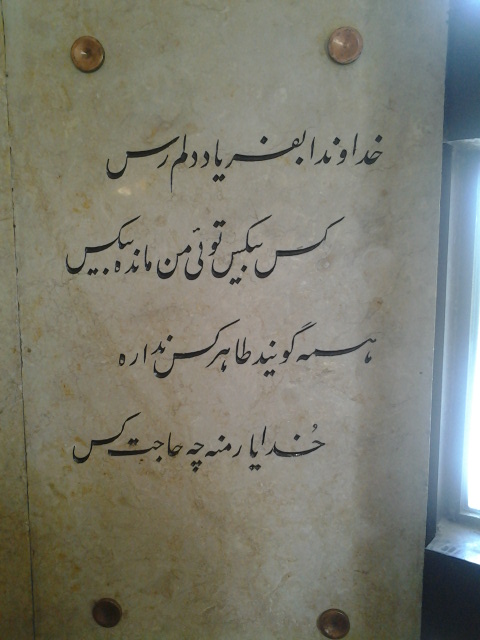 خداوندا بفریاد دلم رس
کس بیکس توئی من مانده بیکس
همه گویند طاهر کس نداره
خُدایا رمنه چه حاجت کس